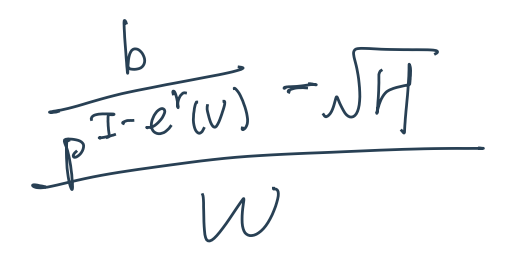 \frac{\frac{b}{p^{I-e^{r}(V)}}-\sqrt{H}}{W}